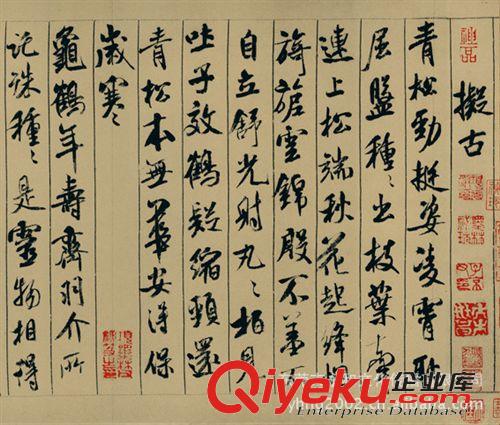 擬古
青松勁挺姿凌霄耻
屈盤種〻出枝葉牽
連上松端秋花起絳烟
旖旎雲錦殷不羞不
自立舒光射丸〻柏見
吐子效鶴疑縮頸還
青松本無華安得保
歲寒
龜鶴年壽齊羽介所
託殊種〻是靈物相得
Qiyeku.com 企业库
Enterprise Database